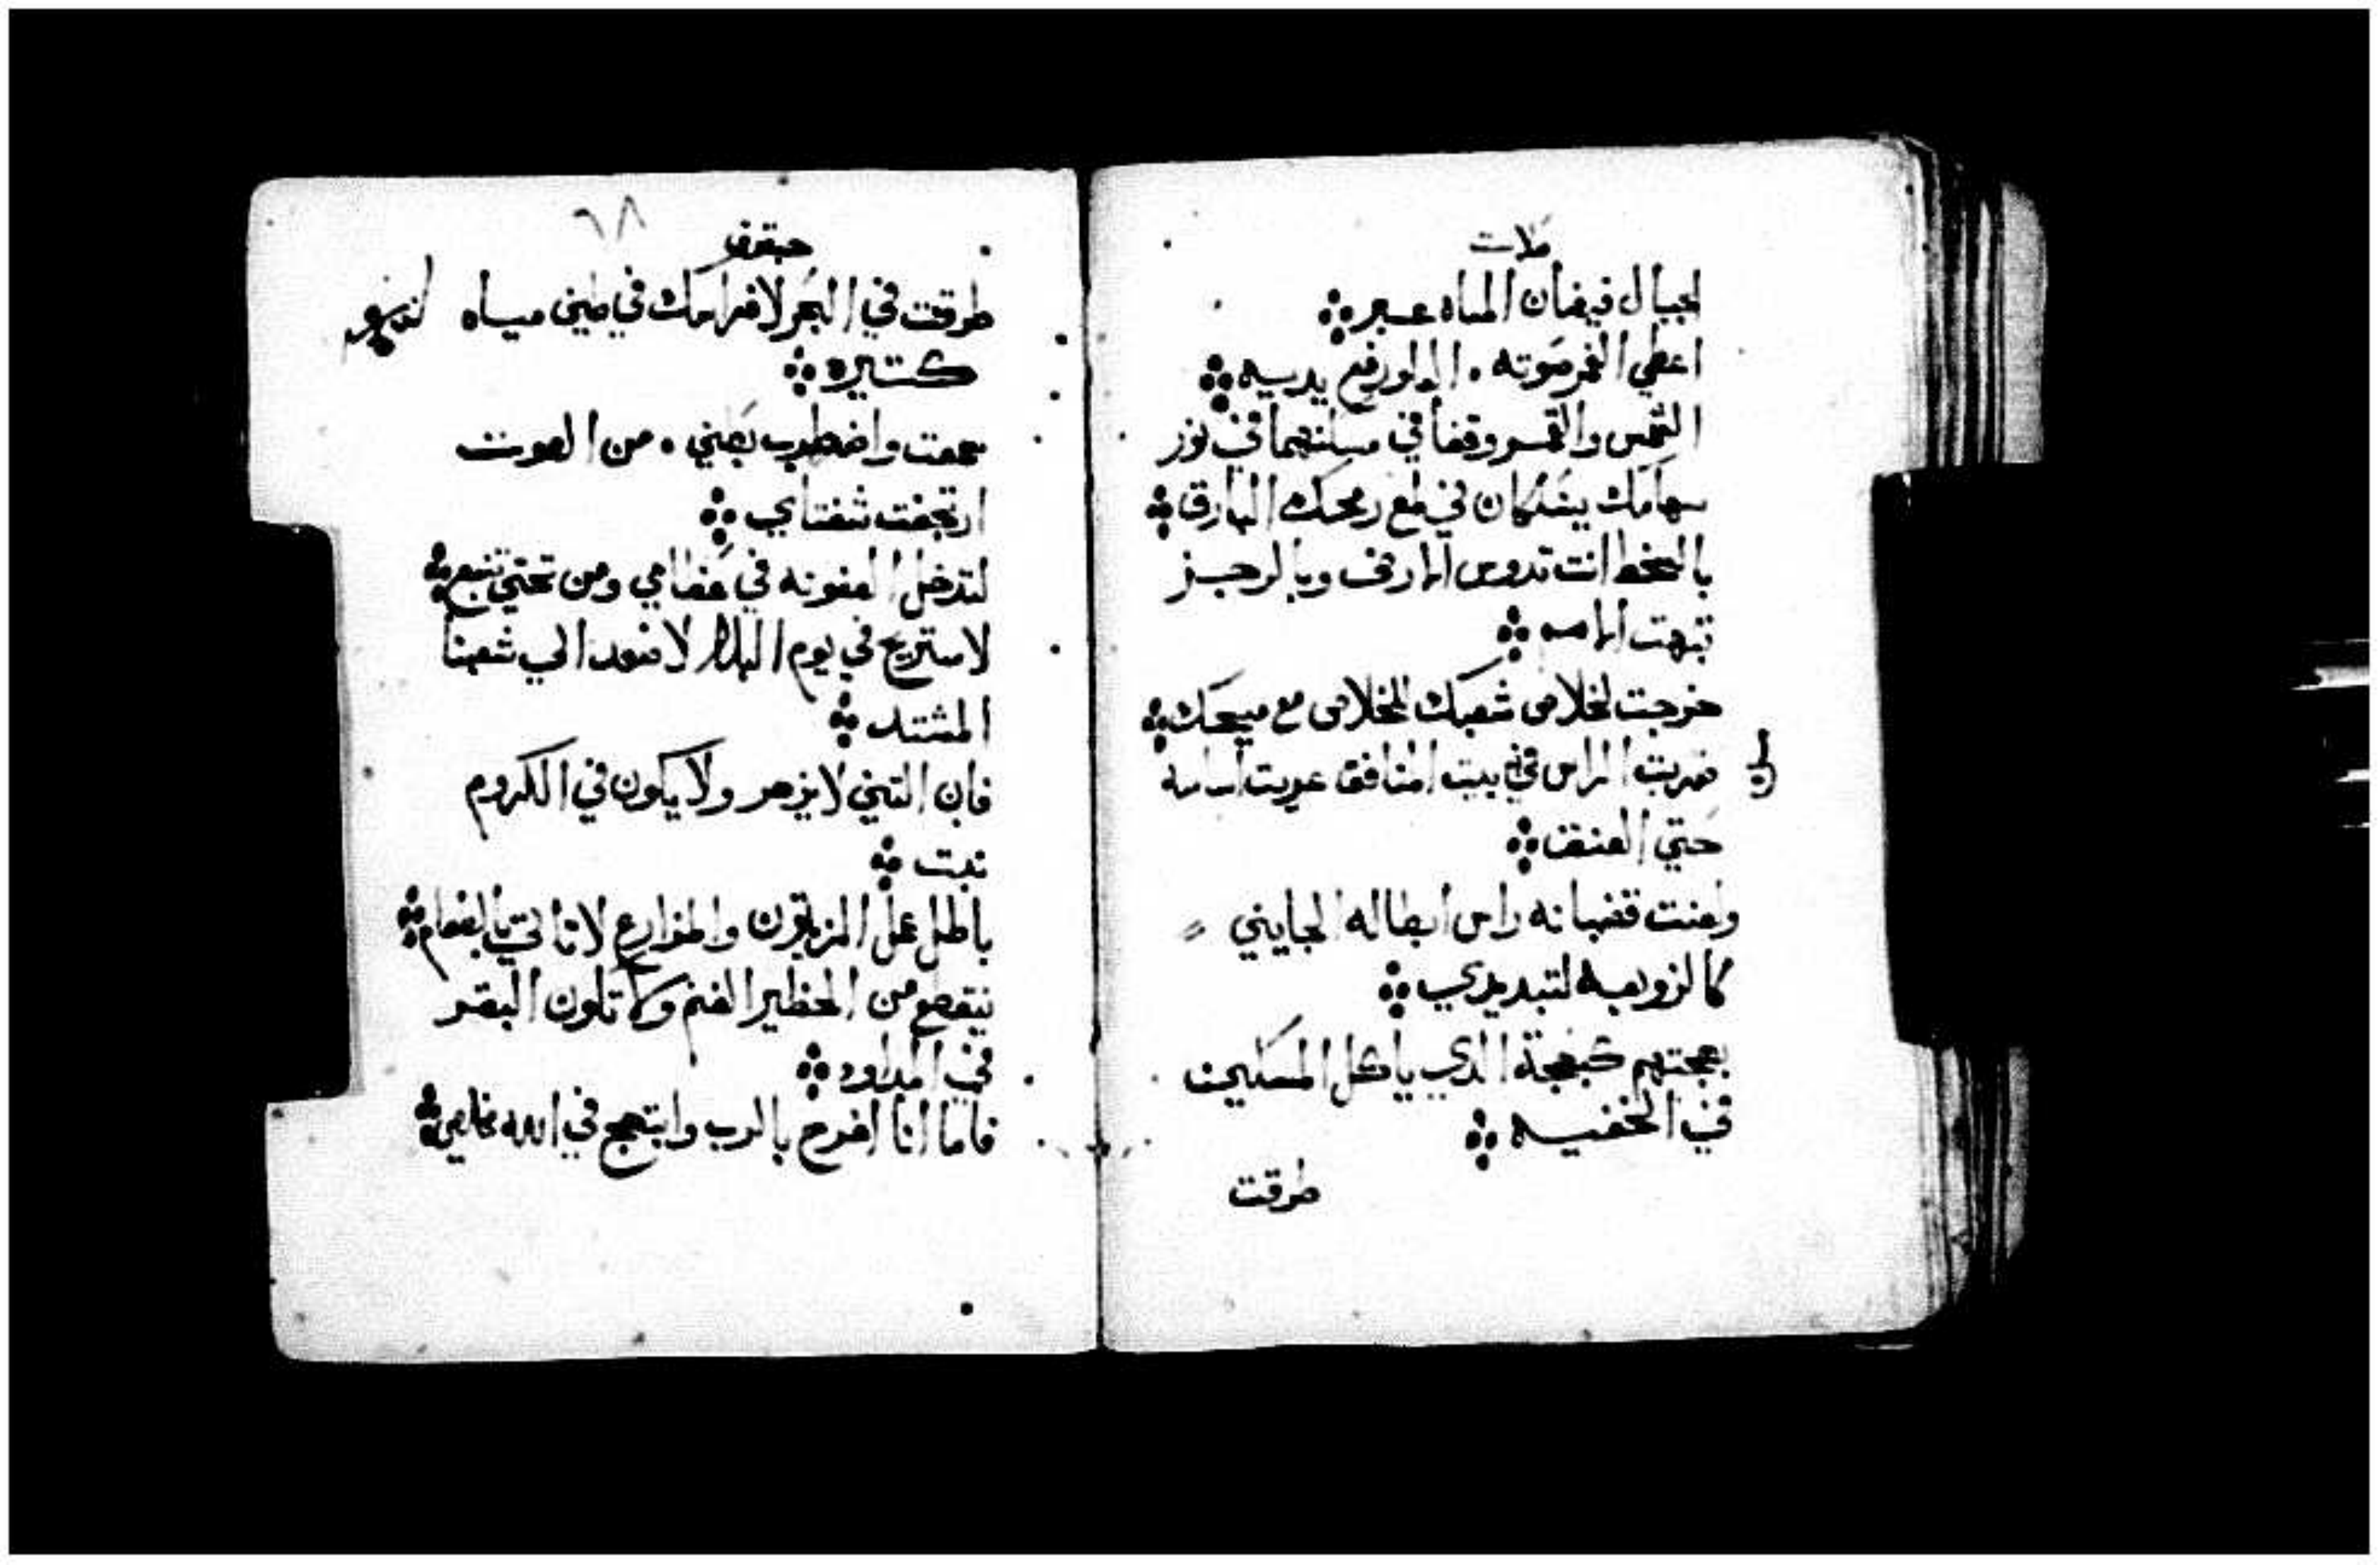 صلات
الجبال فيضان المياه عبر
اعطي الغمر صوته . العلو رفع يديه
الشمس والقمر وقفا في مسكنهما في نور
سهامك ينسلكان في لمع رمحك البارق
بالسخط انت تدوس الارض وبالرجز
تبهت الامم
خرجت لخلاص شعبك للخلاص مع مسيحك
ضربت الراس في بيت المنافق عريت اساسه
حتي العنق
ولعنت قضبانه راس ابطاله الجايين
كالزوبعه لتبديدي
بهجتهم كبهجة الذي ياكل المسكين
في الخفيه
طرقت
٦٨
حبقوق
طرقت في البحر لافراسك في طين مياه
كتيره
سمعت واضطرب بطني . من الصوت
ارتجفت شفتاي
لتدخل العفونه في عظامي ومن تحتي تنبع
لاستريح في يوم البلاء لاصعد الي شعبنا
المشتد
فان التين لا يزهر ولا يكون في الكروم
نبت
باطل عمل الزيتون والمزارع لا تاتي بالطعام
ينقطع من الحظير الغنم ولا تكون البقر
في المداود
فاما انا افرح بالرب وابتهج في الله خلاصي